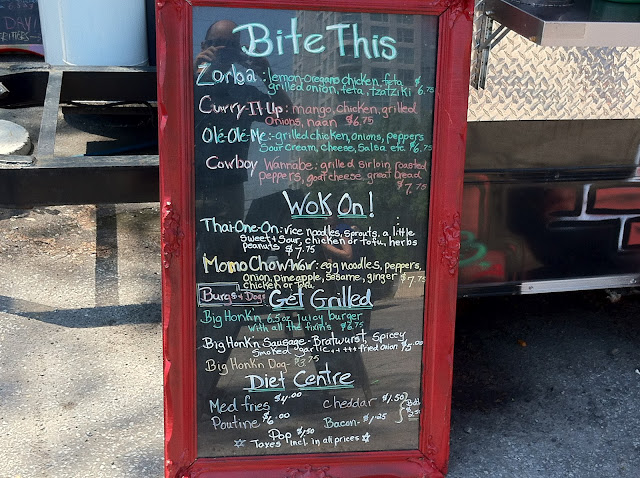 Bite This
Zorba: lemon-oregano chicken, feta
grilled onion, feta, tzatziki $6.75
Curry-It Up: mango, chicken, grilled
Onions, naan $6.75
Olé-Olé-Me:-grilled chicken, onions, peppers
Sour cream, cheese, salsa etc $6.75
Cowboy Wannabe: grilled sirloin, roasted
peppers, goat cheese, great bread
$7.75
Wok On!
Thai-One-On: rice noodles, sprouts, a little
Sweet + Sour, chicken or tofu, herbs
peanuts $7.75
Momo Chow-Wow: egg noodles, peppers,
onion, pineapple, sesame, ginger $7.75
chicken or tofu
Burgs + Dogs Get Grilled
Big Honkin 6.5oz juicy burger
with all the fixin's
Big Honk'n Sausage - Bratwurst, Spicey
Smoked garlic, fried onion $5.00
Big Honk'n Dog - $3.75
Diet Centre
Med fries $4.00
cheddar $1.50
Poutine $6.00
Bacon - $1.25
Pop $1.50
Taxes incl. in all prices